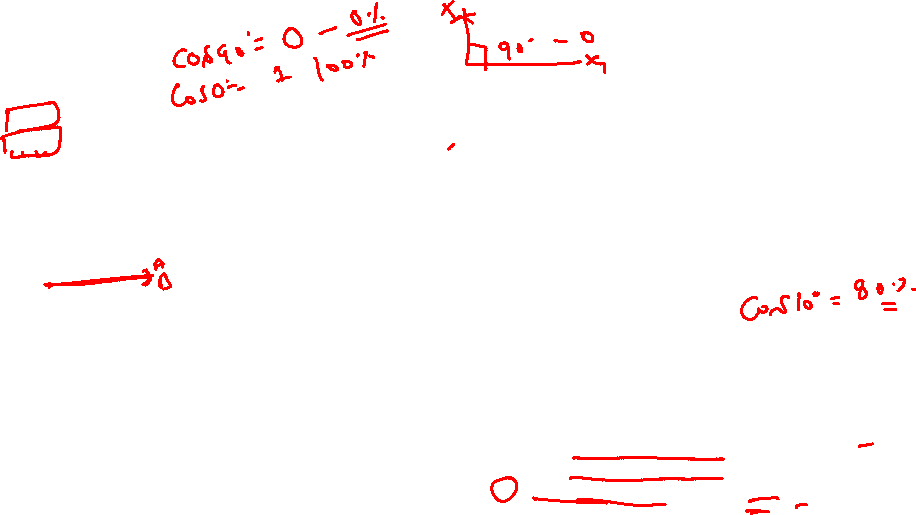 Cos90° = 0 - 0%
Cos0° = 1 100%
x
90° - 0
x1
A
B
Cos10° = 80%.